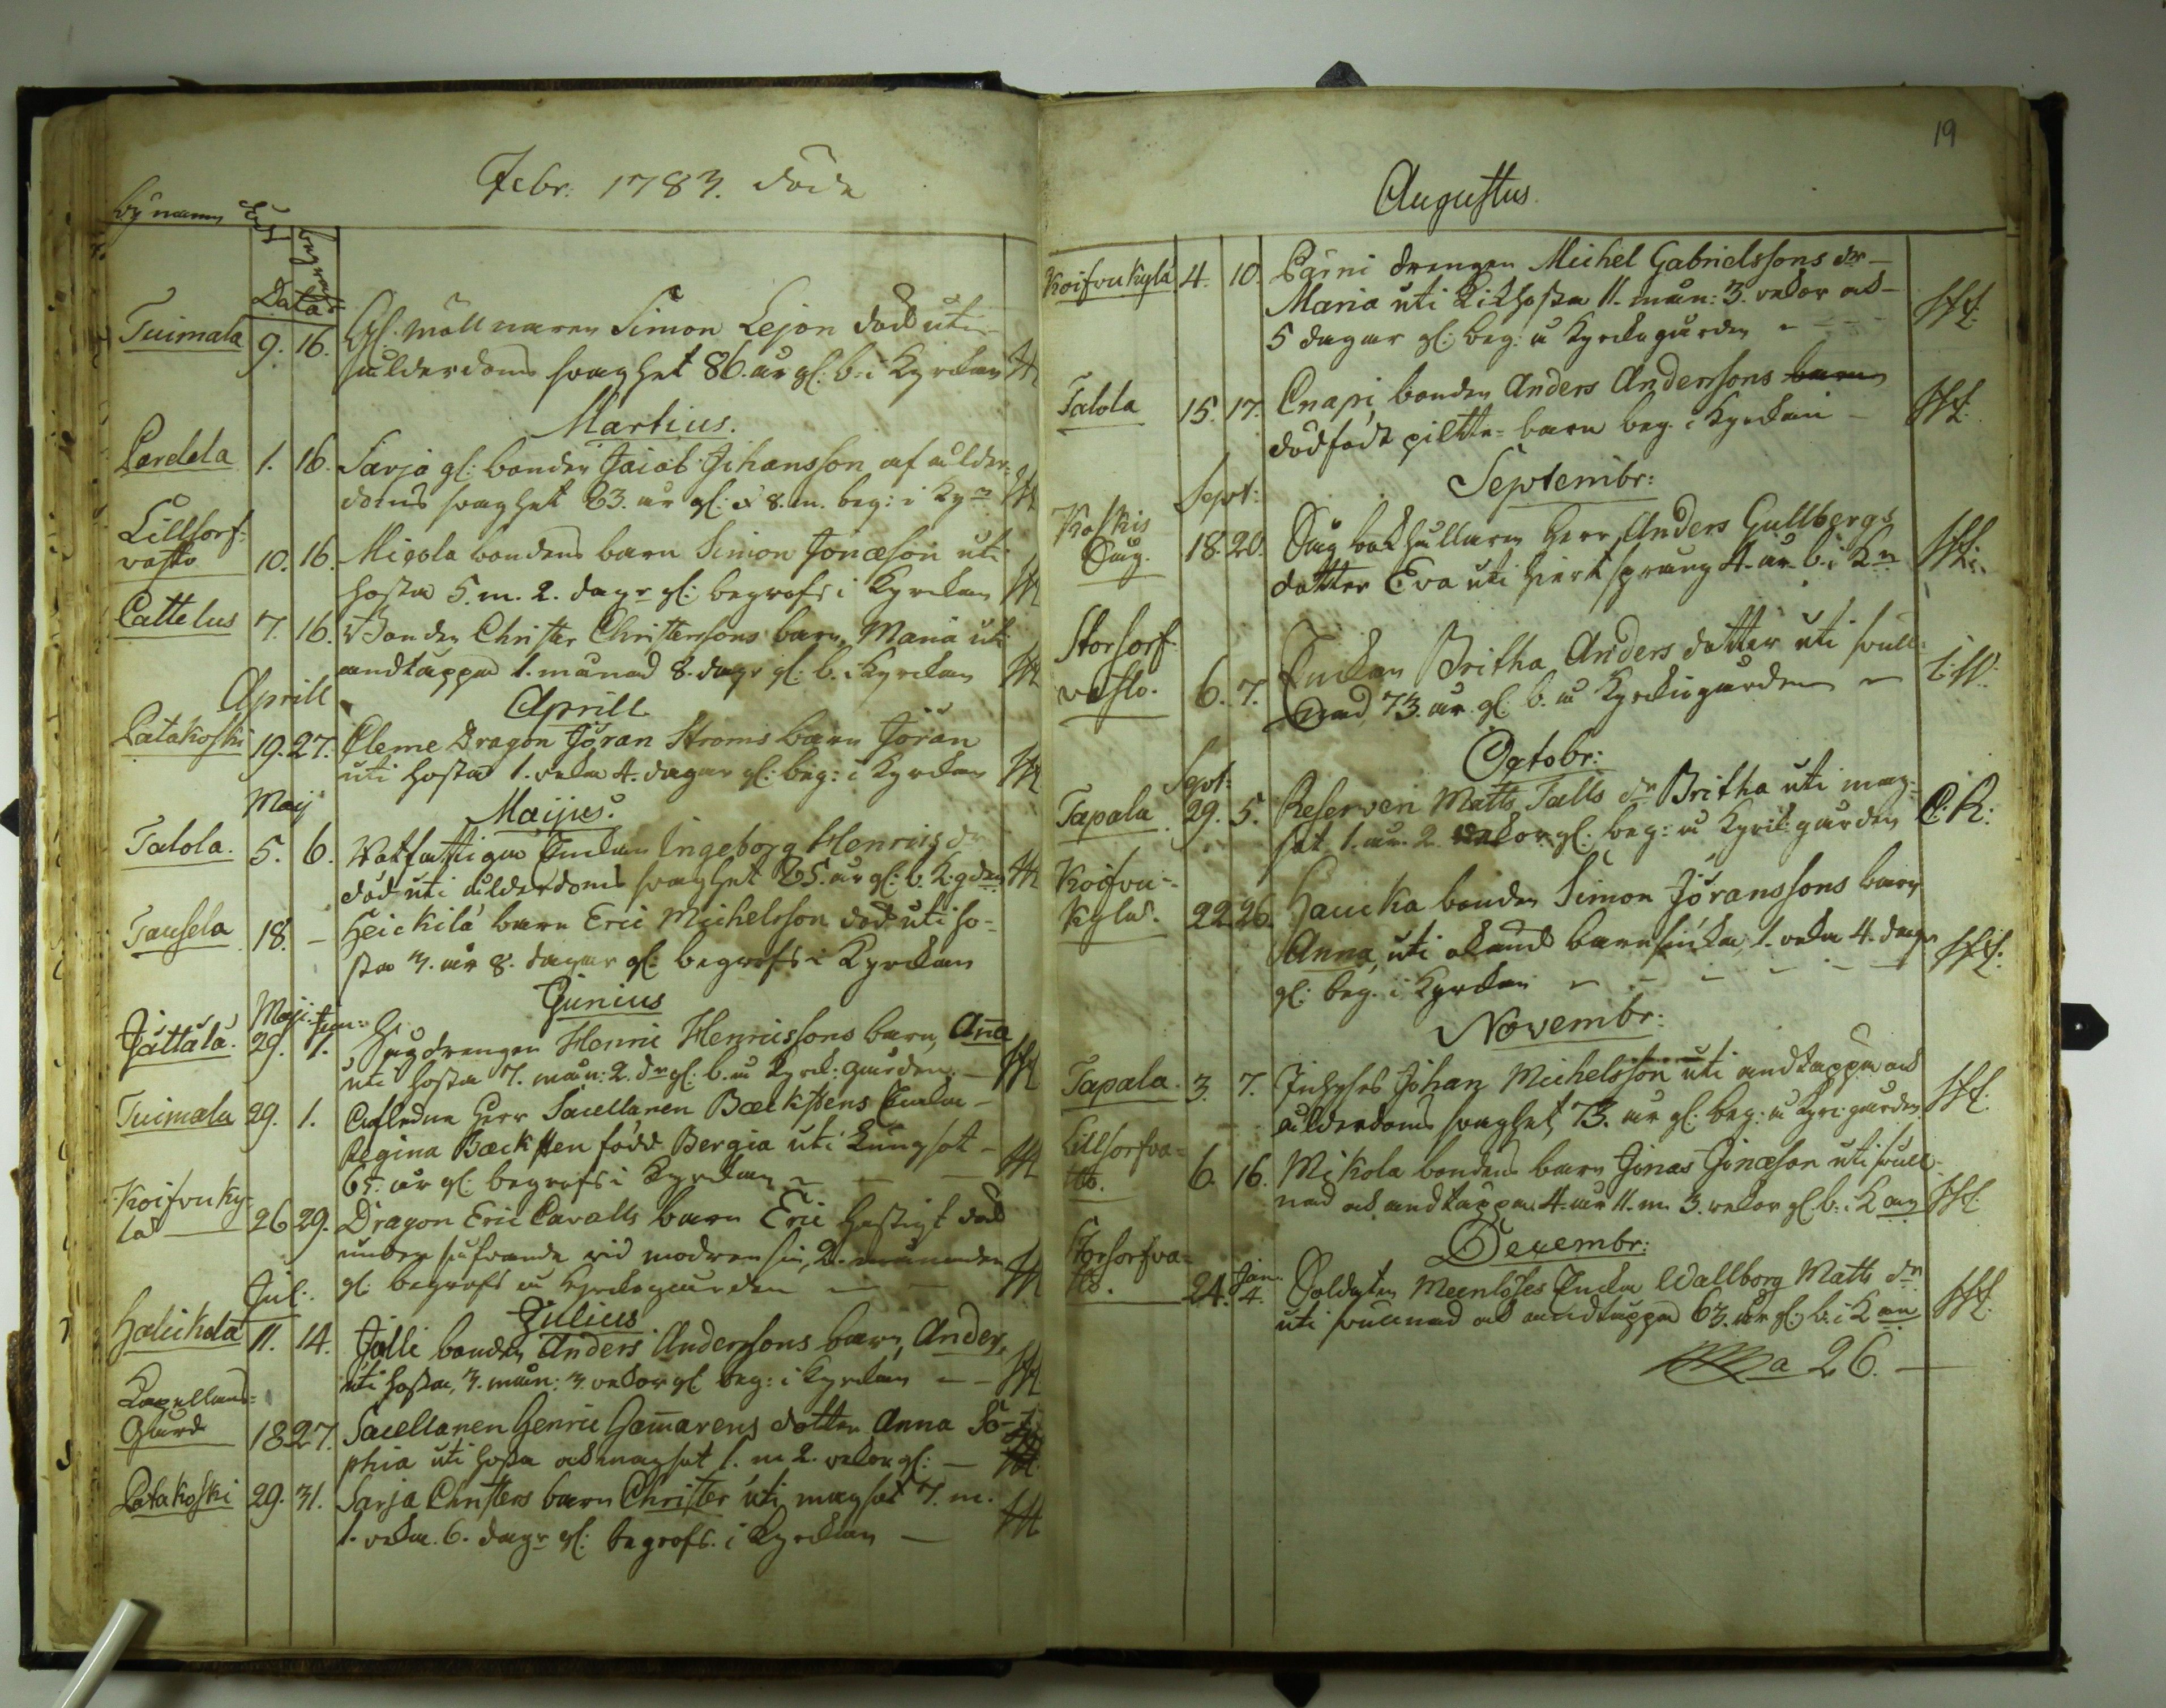 Febr: 1783. döde
by namn Död begrafd
Data
Tuimala 9. 16. Gl: möllnaren Simon Lejon död uti
ålderdoms svaghet 86. år gl: b: i Kyrckan
Martius.
Pardela 1. 16. Sarja gl: bonden Jacob Johansson af ålder-
doms svaghet 83. år gl: o 8. m. beg: i Kyn
Lillsorf-
vasto 10. 16. Micola bondens barn Simon Jonæson uti
hosta 5. m. 2. dagr gl: begrofs i Kyrckan
Pattelus 7. 16. Bonden Christer Christerssons barn, Maria uti
andtäppa 1. månad 8. dagr gl: b. i Kyrckan
Aprill
Aprill
Patakoski 19. 27. Cleme Dragon Jöran Stroms barn Jöran
uti hosta 1. veka 4. dagar gl: beg: i Kyrckan
Maij
Maijus.
Talola. 5. 6. Rotfattiga Enckan Ingeborg Henrics dr
död uti ålderdoms svaghet 85. år gl: b. K:gden
Tausela 18. – Heickilä barn Eric Michelsson död uti ho-
sta 3. år 8. dagar gl: begrofs i Kyrckan
Junius
Maji. Jun:
Jättälä. 29. 1. drengen Henric Henricssons barn, Aña
uti hosta 7. mån: 2. dr gl: b. å Kyrck: gården. –
Tuimala 29. 1. Afledne Herr Sacellanen Bäckstens Encka –
Regina Bäcksten född Bergia uti Lungsot –
65. år gl: begrofs i Kyrckan –
Koifvu Ky-
lä 26 29. Dragon Eric Cavalls barn Eric hastigt död
under sofvande vid modren sin, 2. månader
gl: begrofs å Kyrckogården –
Jul:
Julius
Halickola 11. 14. Jälli bonden Anders Anderssons barn, Anders,
uti hosta, 3. mån: 3. vekor gl. beg: i Kyrckan –
Capellans-
Gård 18 27. Sacellanen Henric Gam̄arens dotter Anna So-
phia uti hosta och magsot 1. m 2. vekor gl: –
Patakoski 29. 31. Sarja Christers barn Christer uti magsot 7. m.
1. veka. 6. dagr gl: begrofs. i Kyrckan –
19
Augustus.
Koifvukylä 4. 10. Pärni drengen Michel Gabrielssons dr –
Maria uti Kikhosta 11. mån: 3. vekor och
5 dagar gl: beg: å Kyrckogården –
Talola 15. 17. Cnapi bonden Anders Anderssons barn
dödfödt piltte-barn beg. i Kyrckan –
Septembr:
Sept:
Koskis
Såg. 18. 20. Såg bokhållaren Herr Anders Gullbergs
dotter Eva uti hiertsprång 4. år b. i Kn
Storsorf-
vasto. 6. 7. Enckan Britha Anders dotter uti svull-
nad 73. år. gl: b. å Kyrckiogården –
Octobr:
Sept:
Tapala 29. 5. Reserven Matts Talls dr Britha uti mag-
sot 1. år. 2. vekor gl: beg: å Kyrck:gården C. R:
Koifvu-
kylä. 22 26. Haucka bonden Simon Jöranssons barn
Anna, uti okänd barnsiuka, 1. veka 4. dagr
gl: beg. i Kyrckan –
Novembr:
Tapala. 3. 7. Inhyses Johan Michelsson uti andtäppa och
ålderdoms svaghet, 73. år gl: beg: å Kyrc:gården
Lillsorfva-
sto. 6. 16. Mikola bondens barn Jonas Jonæson uti svull-
nad och andtäppa 4. år 11. m. 3. vekor gl. b. i Kan
Decembr:
Storsorfva-
sto. 24. Jan. 4. Soldaten Meenlöses Encka Wallborg Matts dr
uti svullnad och andtäppa 63. år gl: b. i Kan
a 26. –